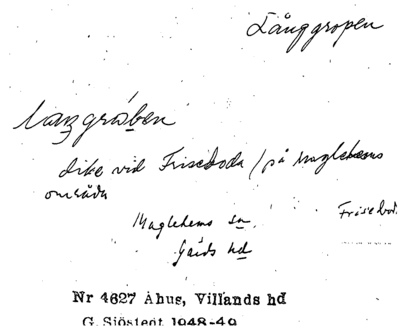 Långgropen
laŋgråben
dike vid Friseboda / på Maglehems
område
Maglehems sn.
Friseboda
Gärds hd
Nr 4627 Åhus, Villands hd
G. Sjöstedt 1948-49